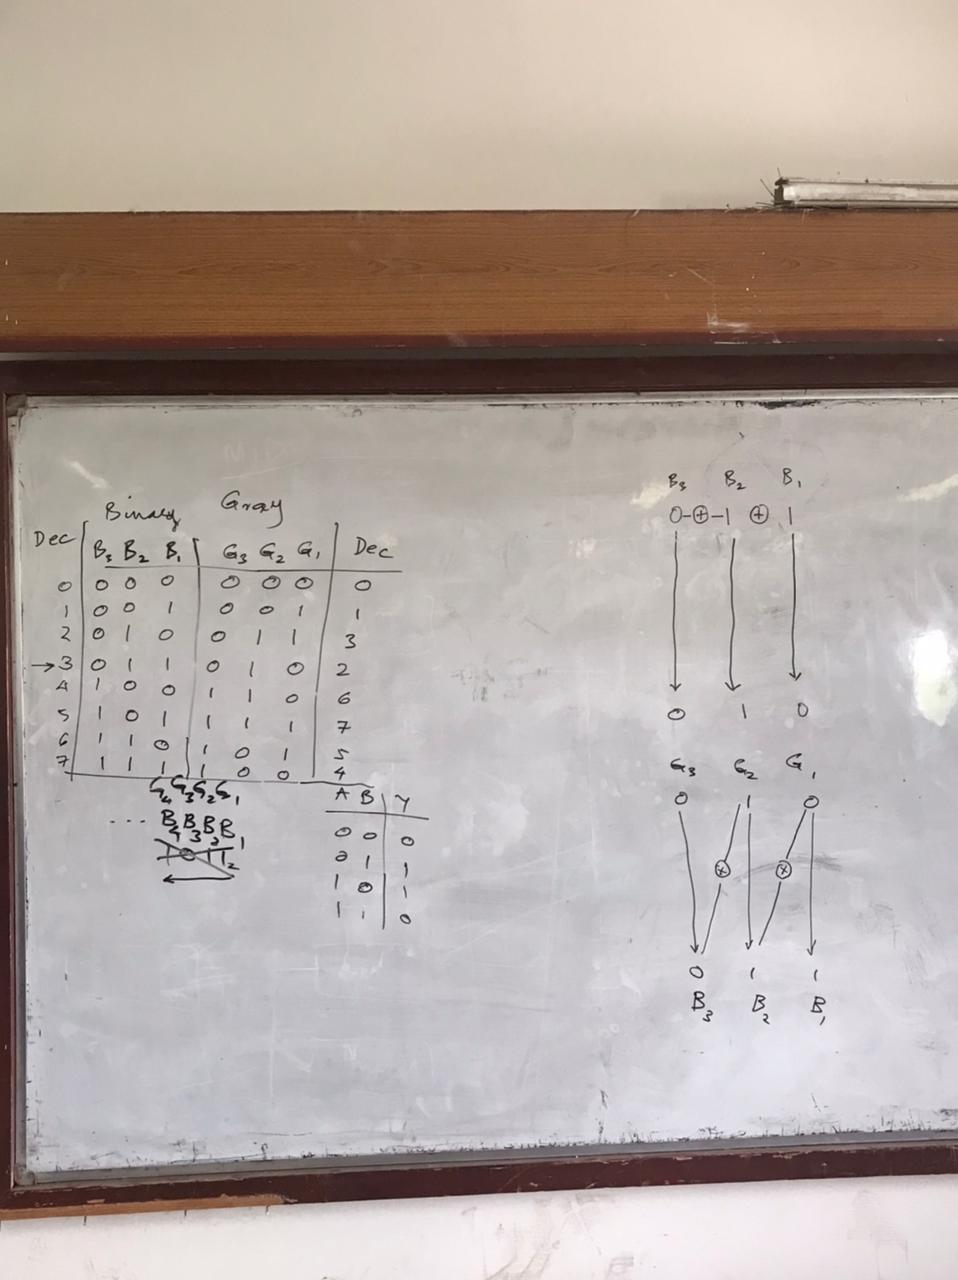 Binary Gray
Dec B₃ B₂ B₁ G₃ G₂ G₁ Dec
0 0 0 0 0 0 0 0
1 0 0 1 0 0 1 1
2 0 1 0 0 1 1 3
→3 0 1 1 0 1 0 2
4 1 0 0 1 1 0 6
5 1 0 1 1 1 1 7
6 1 1 0 1 0 1 5
7 1 1 1 1 0 0 4
G₄ G₃ G₂ G₁
.... B₄ B₃ B₂ B₁
1 0 1 1₂
A B Y
0 0 0
0 1 1
1 0 1
1 1 0
B₃ B₂ B₁
0-⊕-1 ⊕ 1
0 1 0
G₃ G₂ G₁
0 1 0
⊕ ⊕
0 1 1
B₃ B₂ B₁